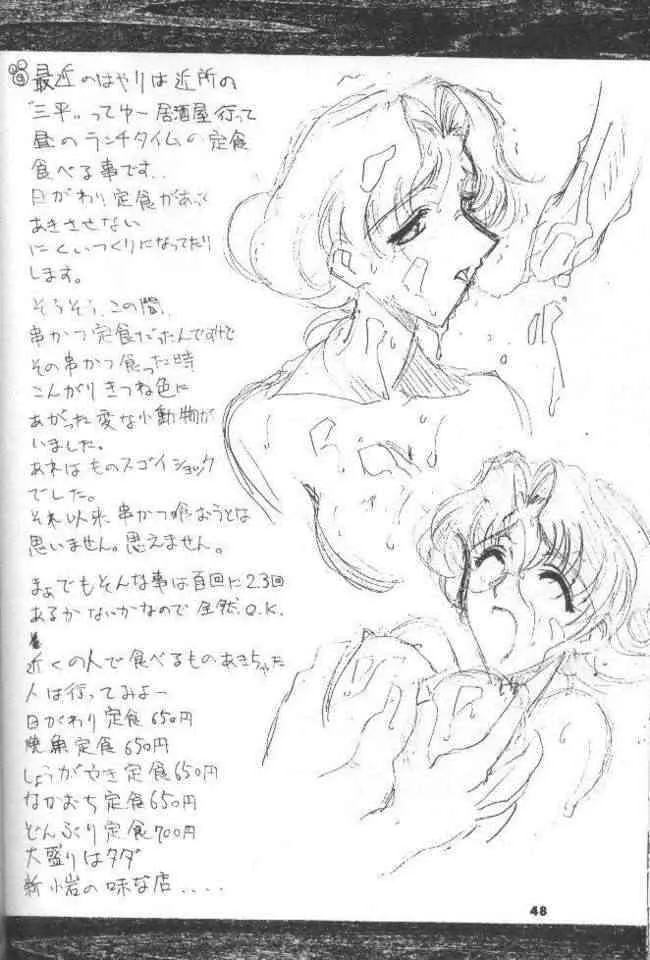 最近のはやりは近所の
"三平"ってゆー居酒屋行って
昼のランチタイムの定食
食べる事です..
日がわり定食があって
あきさせない
にくいつくりになってたり
します。
そうそう、この間、
串かつ定食だったんですけど
その串かつ食った時
こんがりきつね色に
あがった変な小動物が
いました。
あれはものスゴイショック
でした。
それ以来、串かつ喰おうとは
思いません。思えません。
まぁでもそんな事は百回に2.3回
あるかないかなので全然O.K.
近くの人で食べるものあきちゃった
人は行ってみよー
日がわり定食650円
焼魚定食650円
しょうがやき定食650円
なかおち定食650円
どんぶり定食700円
大盛りはタダ
新小岩の味な店....
48